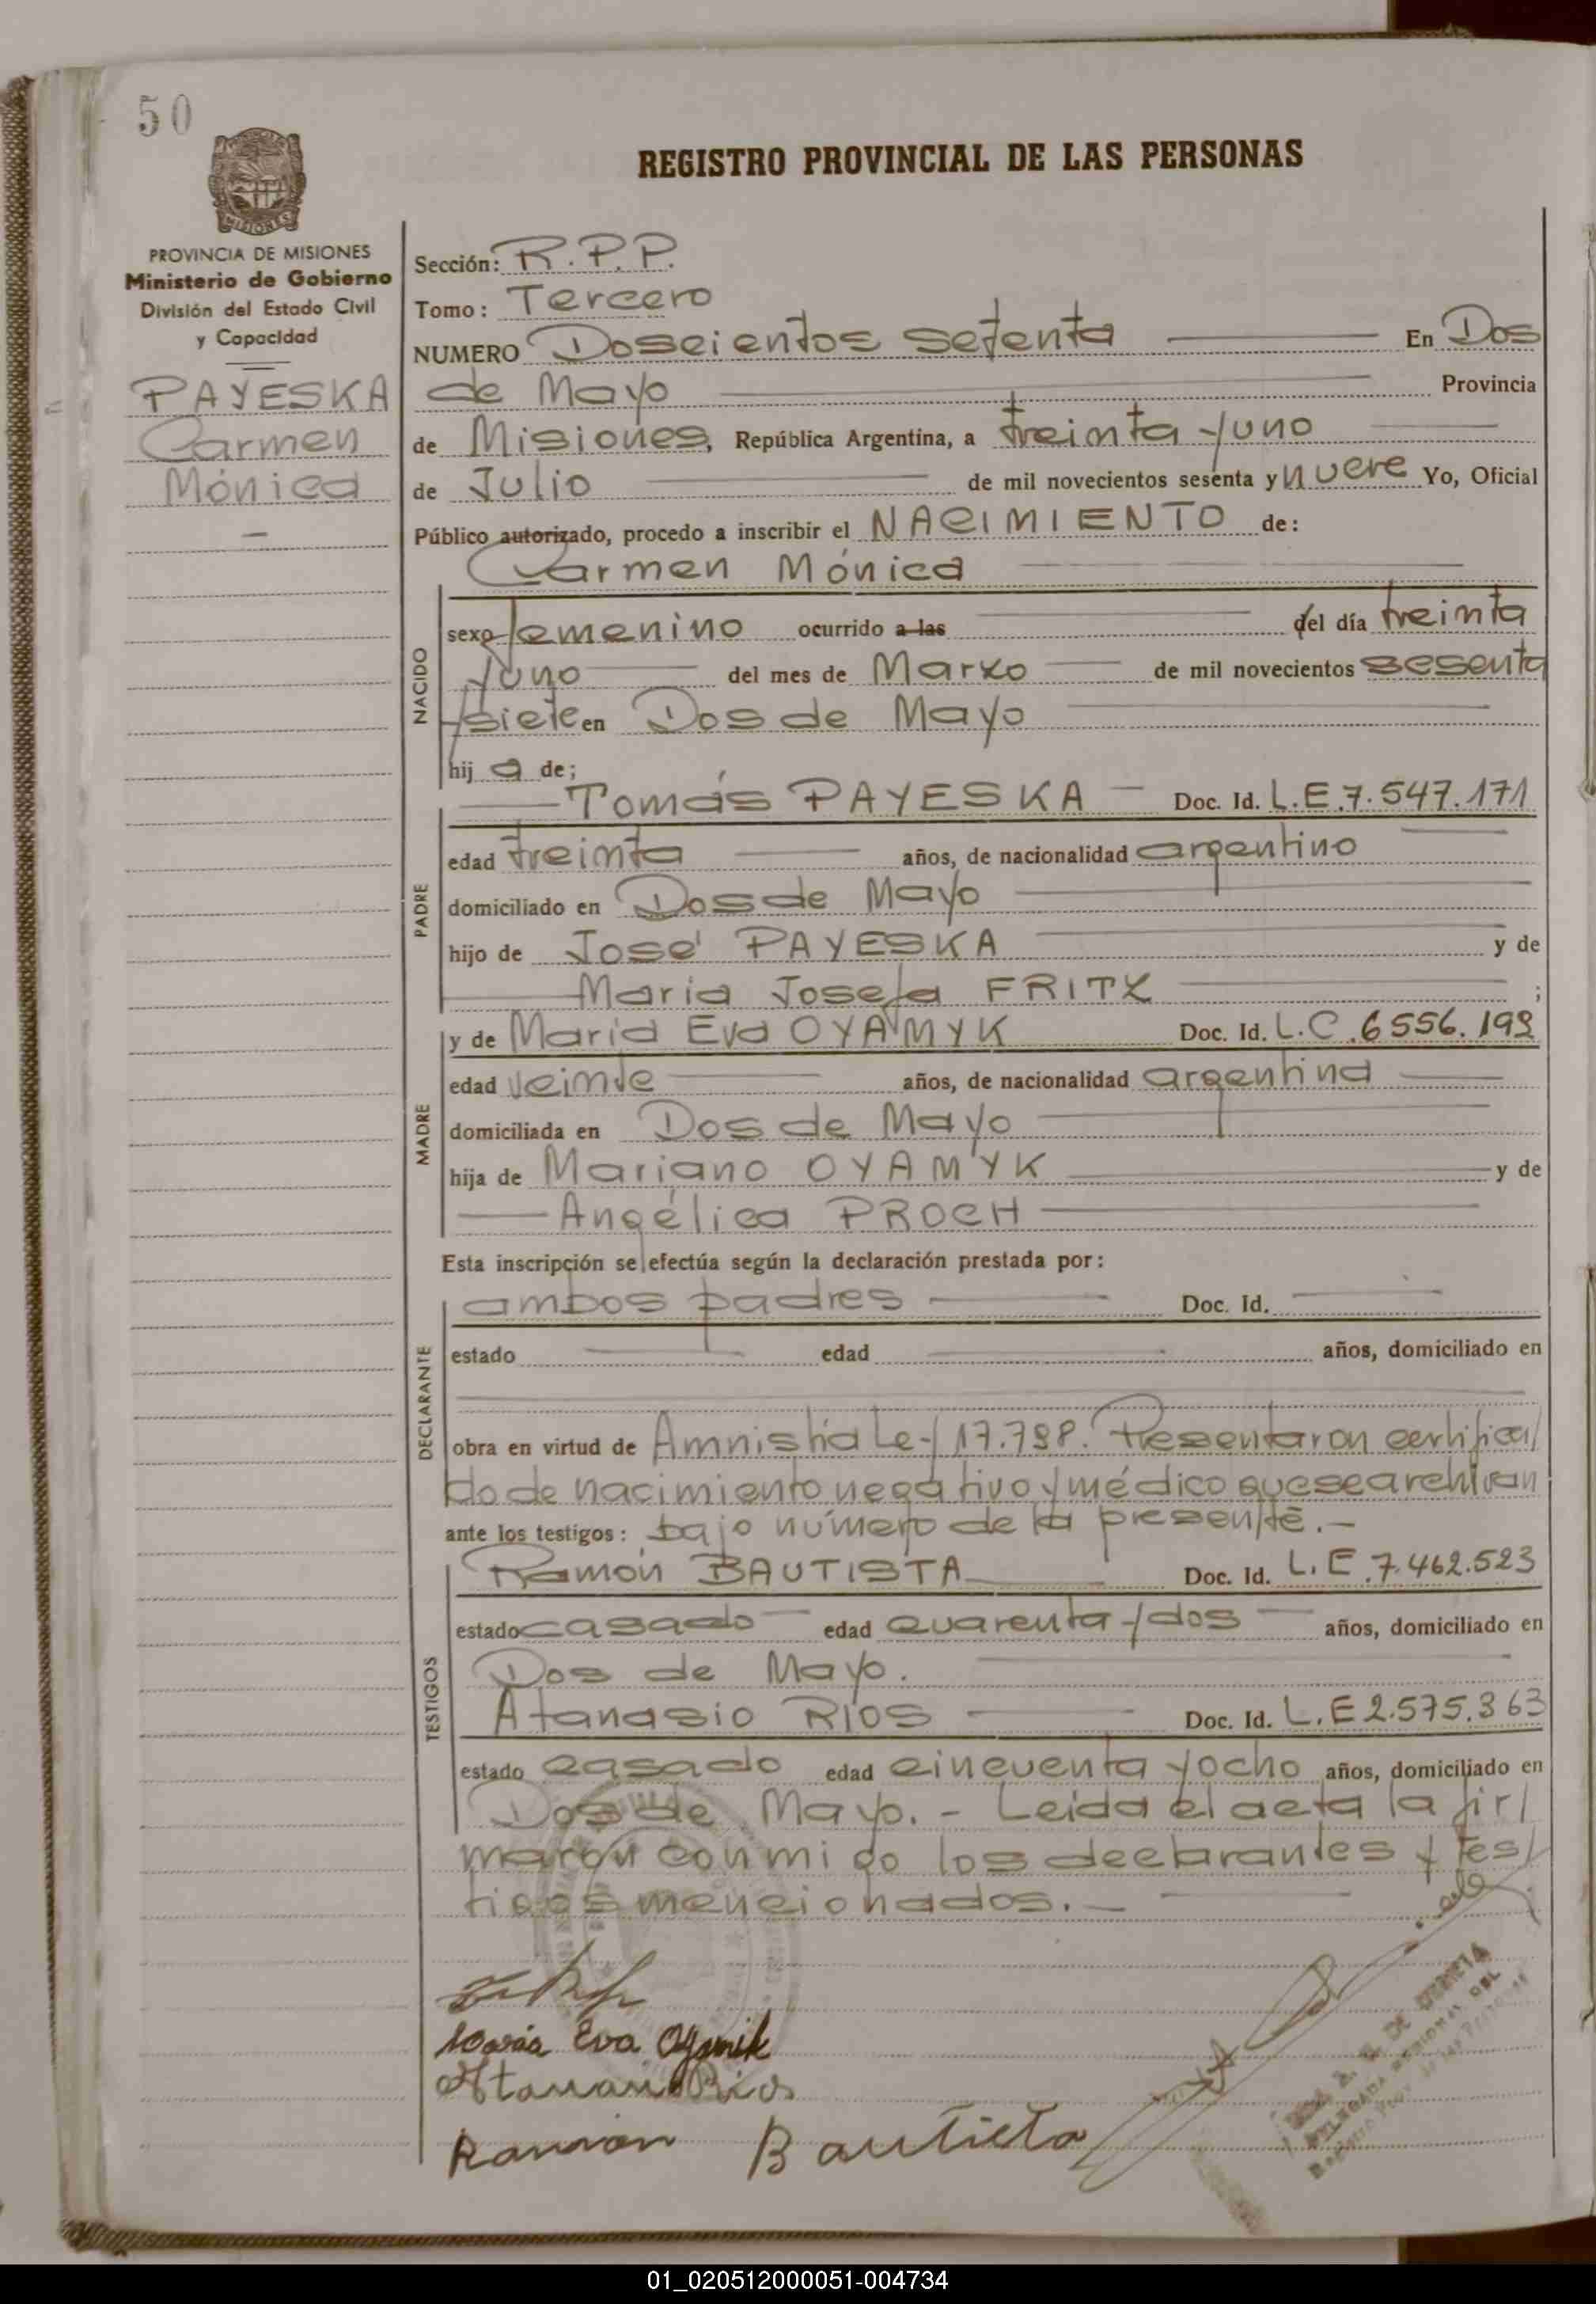 50
PROVINCIA DE MISIONES
Ministerio de Gobierno
División del Estado Civil
y Capacidad
PAYESKA
Carmen
Mónica
REGISTRO PROVINCIAL DE LAS PERSONAS
Sección: R.P.P.
Tomo: Tercero
NUMERO Doscientos setenta En Dos
de Mayo Provincia
de Misiones, República Argentina, a treinta y uno
de Julio de mil novecientos sesenta y nueve Yo, Oficial
Público autorizado, procedo a inscribir el NACIMIENTO de:
Carmen Mónica
NACIDO
sexo femenino ocurrido a las del día treinta
y uno del mes de Marzo de mil novecientos sesenta
y siete en Dos de Mayo
hij a de;
Tomás PAYESKA Doc. Id. L.E.7.547.171
PADRE
edad treinta años, de nacionalidad argentino
domiciliado en Dos de Mayo
hijo de José PAYESKA y de
Maria Josefa FRITZ ;
y de Maria Eva OYAMYK Doc. Id. L.C.6556.199
MADRE
edad veinte años, de nacionalidad argentina
domiciliada en Dos de Mayo
hija de Mariano OYAMYK y de
Angélica PROCH
Esta inscripción se efectúa según la declaración prestada por:
DECLARANTE
ambos padres Doc. Id.
estado edad años, domiciliado en
obra en virtud de Amnistía Ley 17.798. Presentaron certifica/
do de nacimiento negativo y médico que se archivan
ante los testigos: bajo número de la presente.-
TESTIGOS
Ramón BAUTISTA Doc. Id. L.E.7.462.523
estado casado edad cuarenta y dos años, domiciliado en
Dos de Mayo.
Atanasio RIOS Doc. Id. L.E 2.575.363
estado casado edad cincuenta y ocho años, domiciliado en
Dos de Mayo.- Leida el acta la fir/
maron conmigo los declarantes y tes/
tigos mencionados.-
Maria Eva Oyamik
Atanasio Rios
Ramon Bautista
01_020512000051-004734